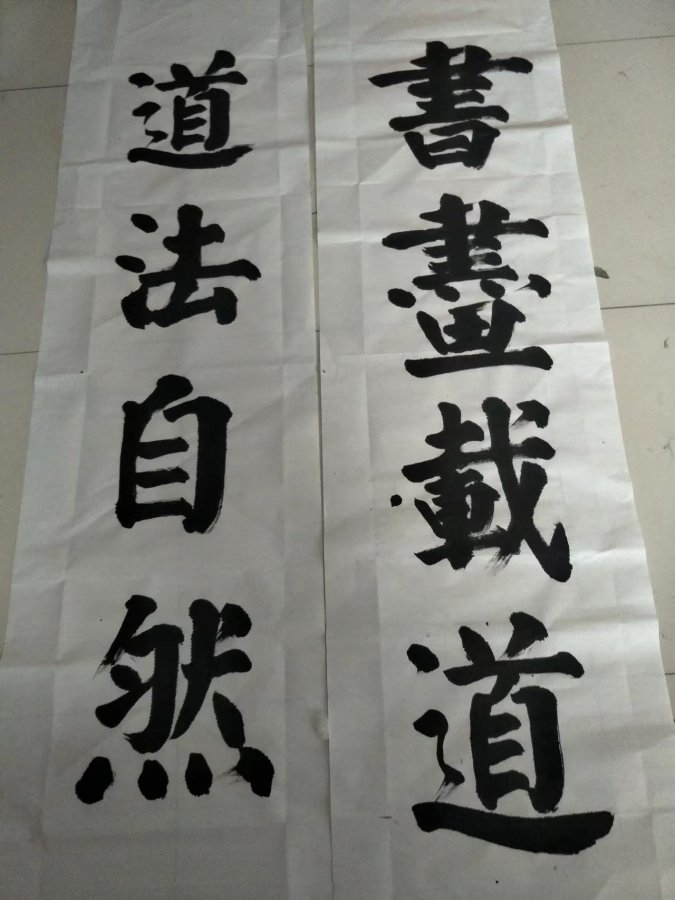 書畫載道
道法自然